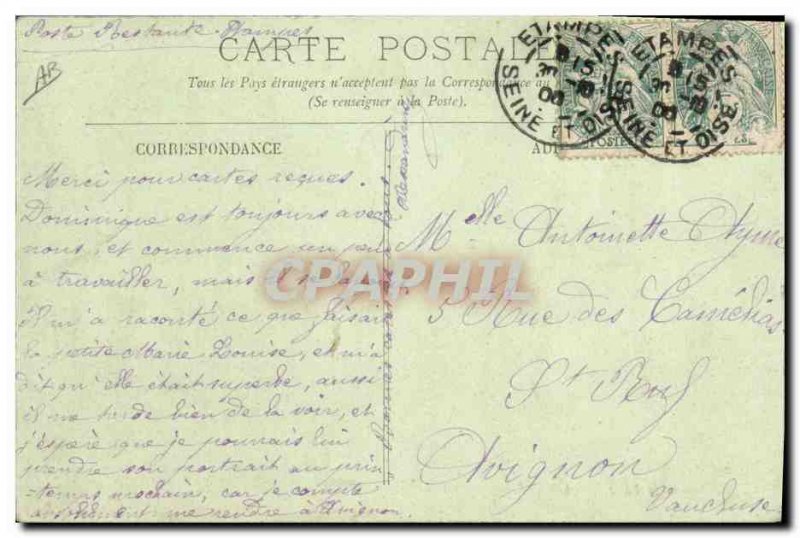 Poste Restante Etampes
CARTE POSTALE
Tous les Pays étrangers n'acceptent pas la Correspondance au
(Se renseigner à la Poste).
ETAMPES
SEINE ET OISE
ETAMPES
SEINE ET OISE
CORRESPONDANCE
Merci pour cartes reçues.
Dominique est toujours avec
nous, et commence un peu
à travailler, mais il se
Il m'a raconté ce que faisait
la petite Marie Louise, et m'a
dit qu'elle était superbe, aussi
il me tarde bien de la voir, et
j'espère que je pourrais lui
prendre son portrait au prin
temps prochain, car je compte
me rendre à Avignon.
Alexandrine
Melle Antoinette Ayme
5 Rue des Camélias
St Ruf
Avignon
Vaucluse
AB
CPAPHIL